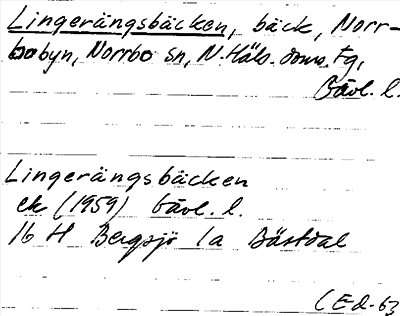 Lingerängsbäcken, bäck, Norr-
bobyn, Norrbo sn, N. Häls. doms. Fg,
Gävl. l.
Lingerängsbäcken
ek (1959) Gävl. l.
16 H Bergsjö 1a Bästdal
(Ed-63